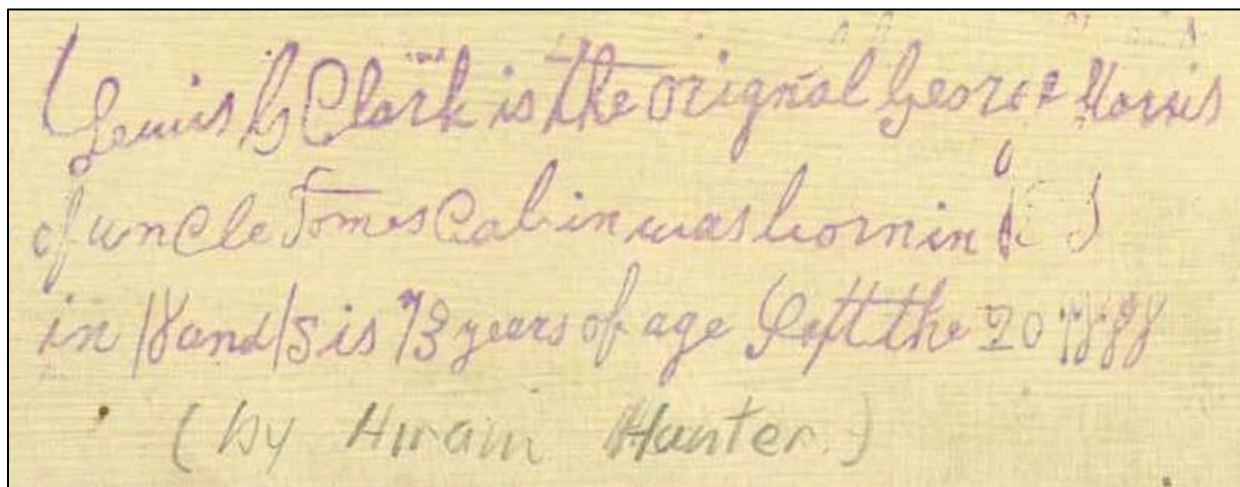 Lewis G Clark is the orignal George Harris
of uncle Tomes Cabin was born in
in 18 and 15 is 73 years of age Left the 20
(by Hiram Hunter.)